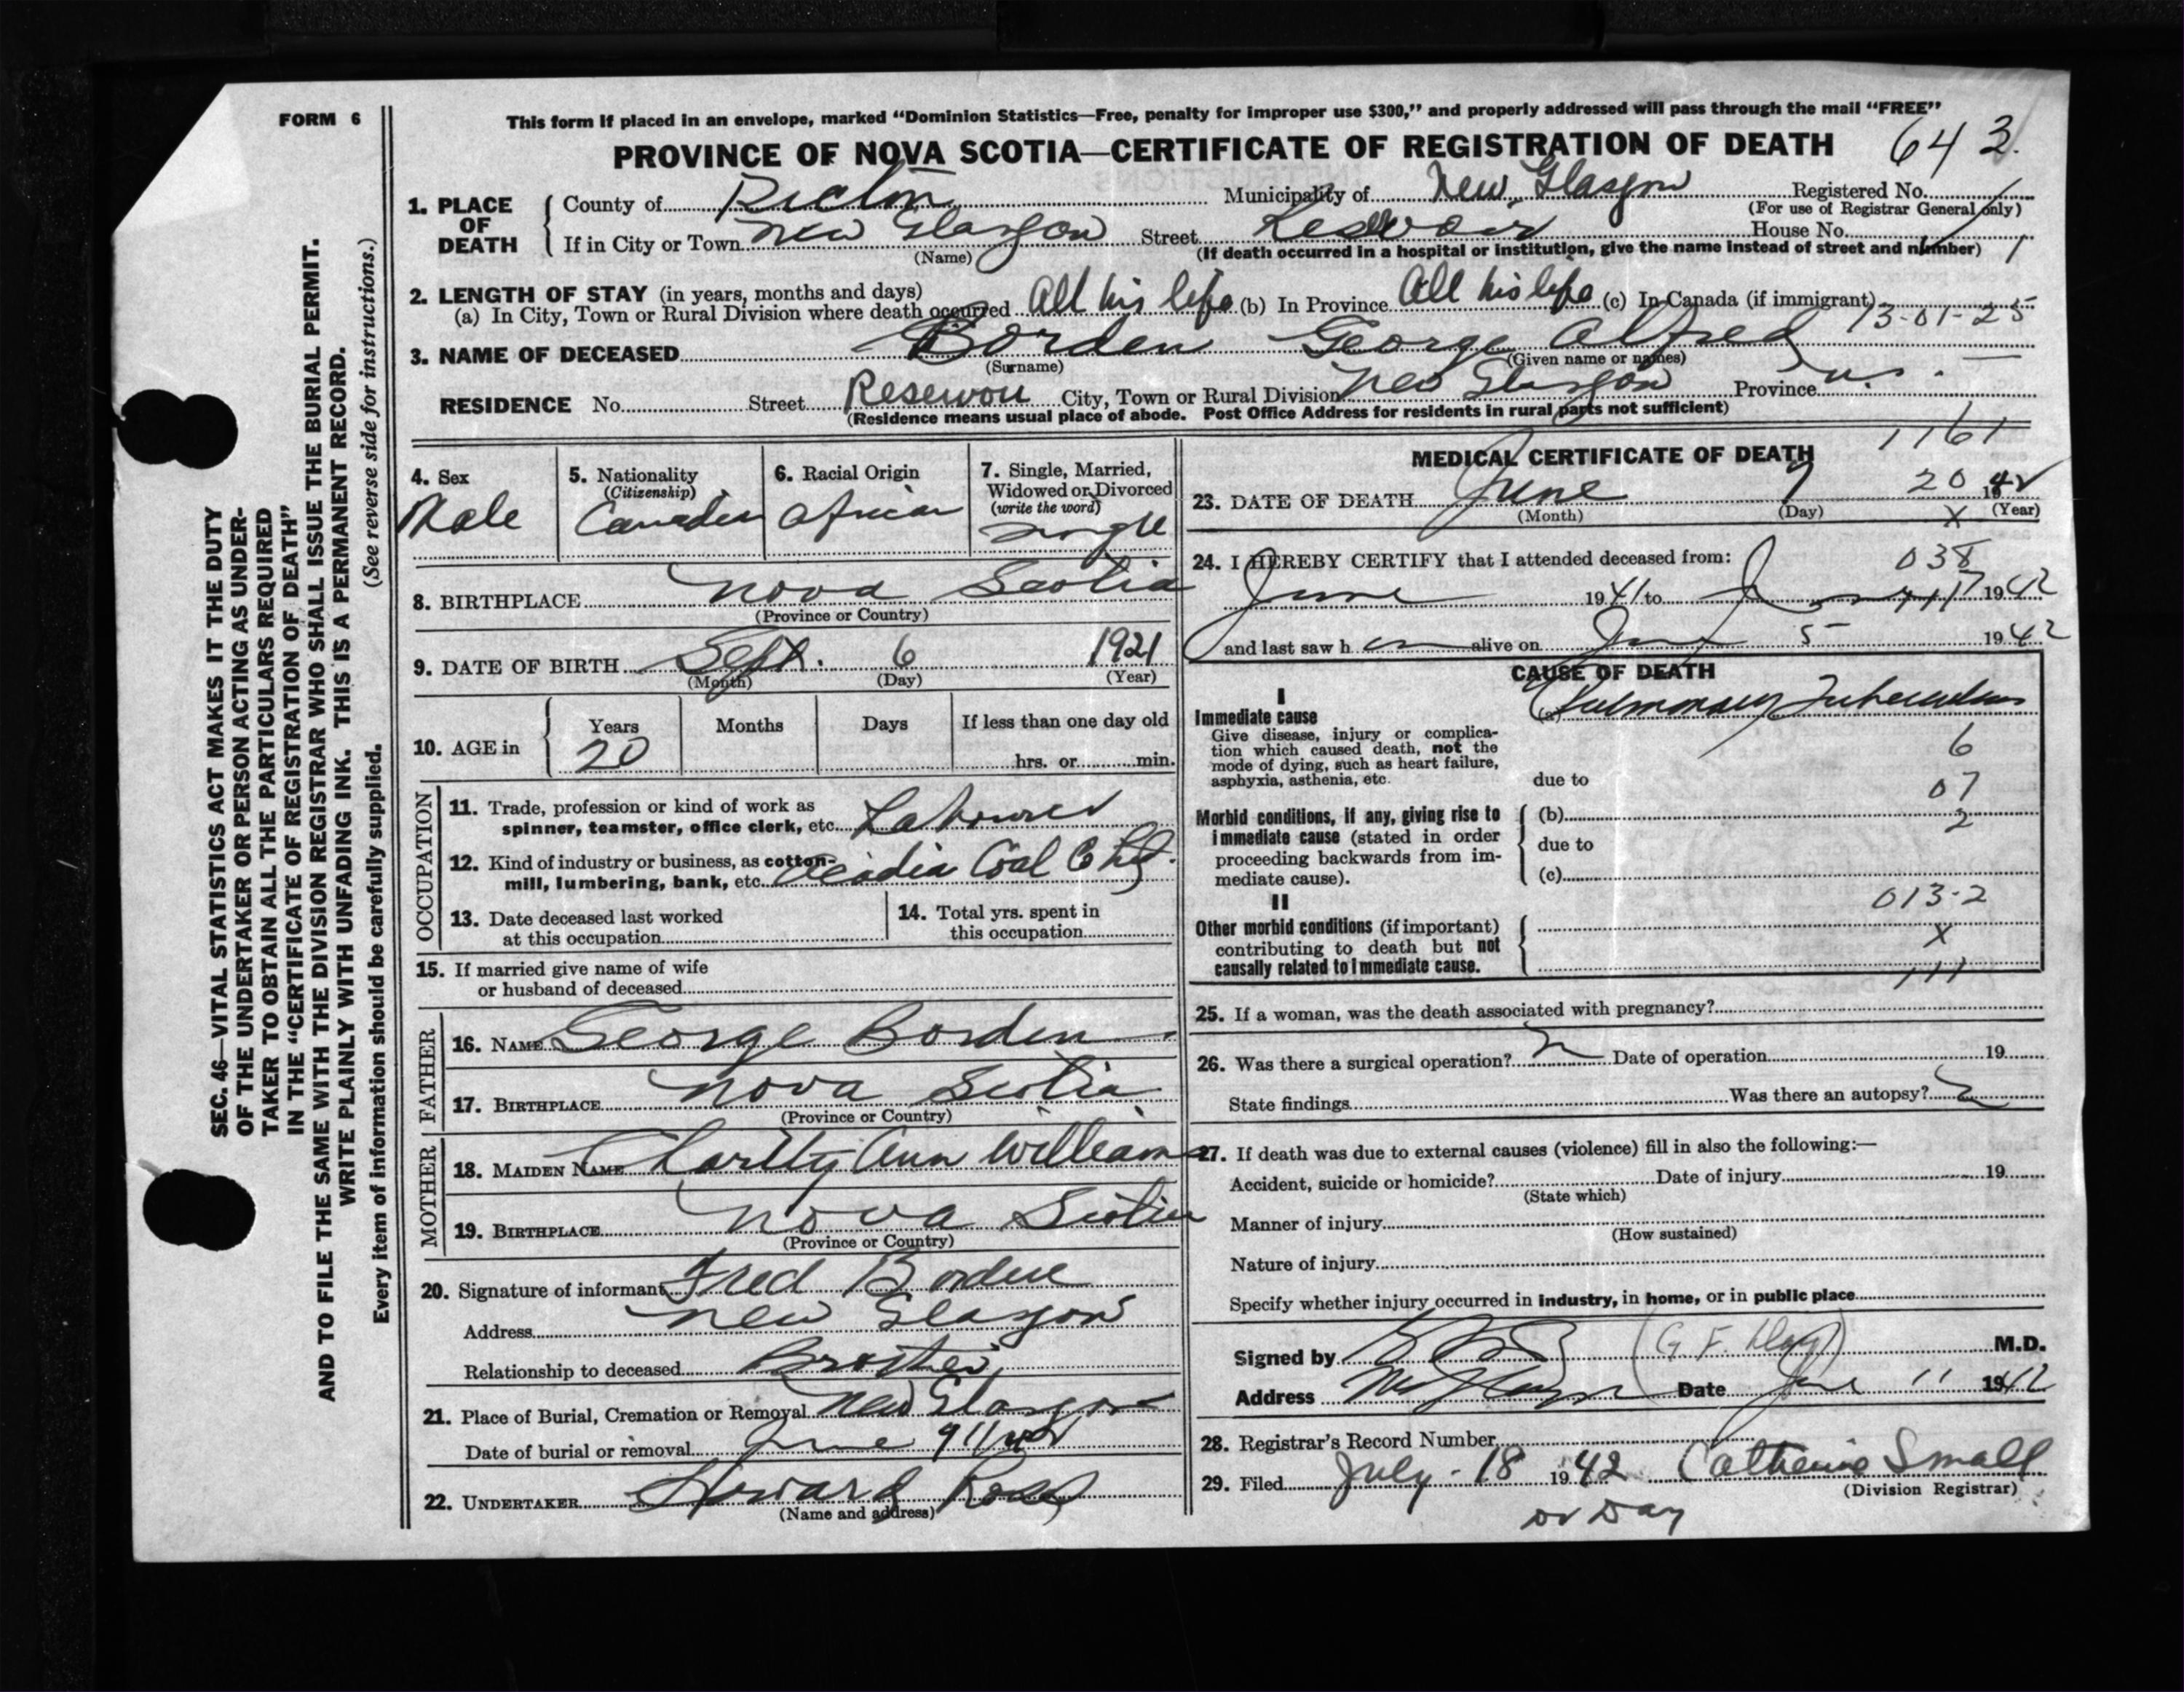 FORM 6
This form if placed in an envelope, marked “Dominion Statistics—Free, penalty for improper use $300,” and properly addressed will pass through the mail “FREE”
PROVINCE OF NOVA SCOTIA—CERTIFICATE OF REGISTRATION OF DEATH 643.
1. PLACE OF DEATH
County of Pictou Municipality of New Glasgow Registered No.
(For use of Registrar General only)
If in City or Town New Glasgow Street House No.
(Name) (If death occurred in a hospital or institution, give the name instead of street and number)
2. LENGTH OF STAY (in years, months and days)
(a) In City, Town or Rural Division where death occurred All his life (b) In Province All his life (c) In Canada (if immigrant)
13-01-25
3. NAME OF DECEASED Borden George Alfred
(Surname) (Given name or names)
RESIDENCE No. Street Reservoir City, Town or Rural Division New Glasgow Province N.S.
(Residence means usual place of abode. Post Office Address for residents in rural parts not sufficient)
4. Sex Male
5. Nationality (Citizenship) Canadian
6. Racial Origin African
7. Single, Married, Widowed or Divorced (write the word) Single
8. BIRTHPLACE Nova Scotia
(Province or Country)
9. DATE OF BIRTH Sept. 6 1921
(Month) (Day) (Year)
10. AGE in Years 20 Months Days If less than one day old
hrs. or min.
OCCUPATION
11. Trade, profession or kind of work as
spinner, teamster, office clerk, etc. Labourer
12. Kind of industry or business, as cotton-
mill, lumbering, bank, etc. Acadia Coal Co Ltd.
13. Date deceased last worked
at this occupation
14. Total yrs. spent in
this occupation
15. If married give name of wife
or husband of deceased
FATHER
16. NAME George Borden
17. BIRTHPLACE Nova Scotia
(Province or Country)
MOTHER
18. MAIDEN NAME Ann Williams
19. BIRTHPLACE Nova Scotia
(Province or Country)
20. Signature of informant Fred Borden
Address New Glasgow
Relationship to deceased Brother
21. Place of Burial, Cremation or Removal New Glasgow
Date of burial or removal June 9
22. UNDERTAKER Howard Ross
(Name and address)
MEDICAL CERTIFICATE OF DEATH
1161
23. DATE OF DEATH June 7 20 1942
(Month) (Day) (Year)
X
24. I HEREBY CERTIFY that I attended deceased from:
038
June 1941 to June 7 1942
and last saw h alive on June 5 1942
CAUSE OF DEATH
I
Immediate cause
Give disease, injury or complica-
tion which caused death, not the
mode of dying, such as heart failure,
asphyxia, asthenia, etc.
(a) Pulmonary Tuberculosis
6
due to
07
Morbid conditions, if any, giving rise to
immediate cause (stated in order
proceeding backwards from im-
mediate cause).
(b) 2
due to
(c)
II
Other morbid conditions (if important)
contributing to death but not
causally related to immediate cause.
013-2
X
111
25. If a woman, was the death associated with pregnancy?
26. Was there a surgical operation? Date of operation 19
State findings Was there an autopsy?
27. If death was due to external causes (violence) fill in also the following:—
Accident, suicide or homicide? Date of injury 19
(State which)
Manner of injury
(How sustained)
Nature of injury
Specify whether injury occurred in industry, in home, or in public place
Signed by (G. F. Day) M.D.
Address New Glasgow Date June 11 1942
28. Registrar’s Record Number
29. Filed July - 18 1942 Catherine Small
(Division Registrar)
Dr Day
SEC. 46—VITAL STATISTICS ACT MAKES IT THE DUTY
OF THE UNDERTAKER OR PERSON ACTING AS UNDER-
TAKER TO OBTAIN ALL THE PARTICULARS REQUIRED
IN THE “CERTIFICATE OF REGISTRATION OF DEATH”
AND TO FILE THE SAME WITH THE DIVISION REGISTRAR WHO SHALL ISSUE THE BURIAL PERMIT.
WRITE PLAINLY WITH UNFADING INK. THIS IS A PERMANENT RECORD.
(See reverse side for instructions.)
Every item of information should be carefully supplied.